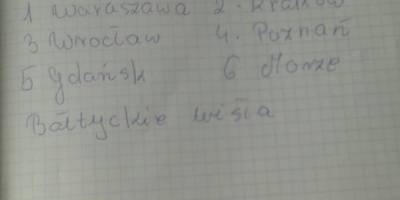 1 Waraszawa 2. Kraków
3 Wrocław 4. Poznań
5 Gdańsk 6 Morze
Bałtyckie wisła